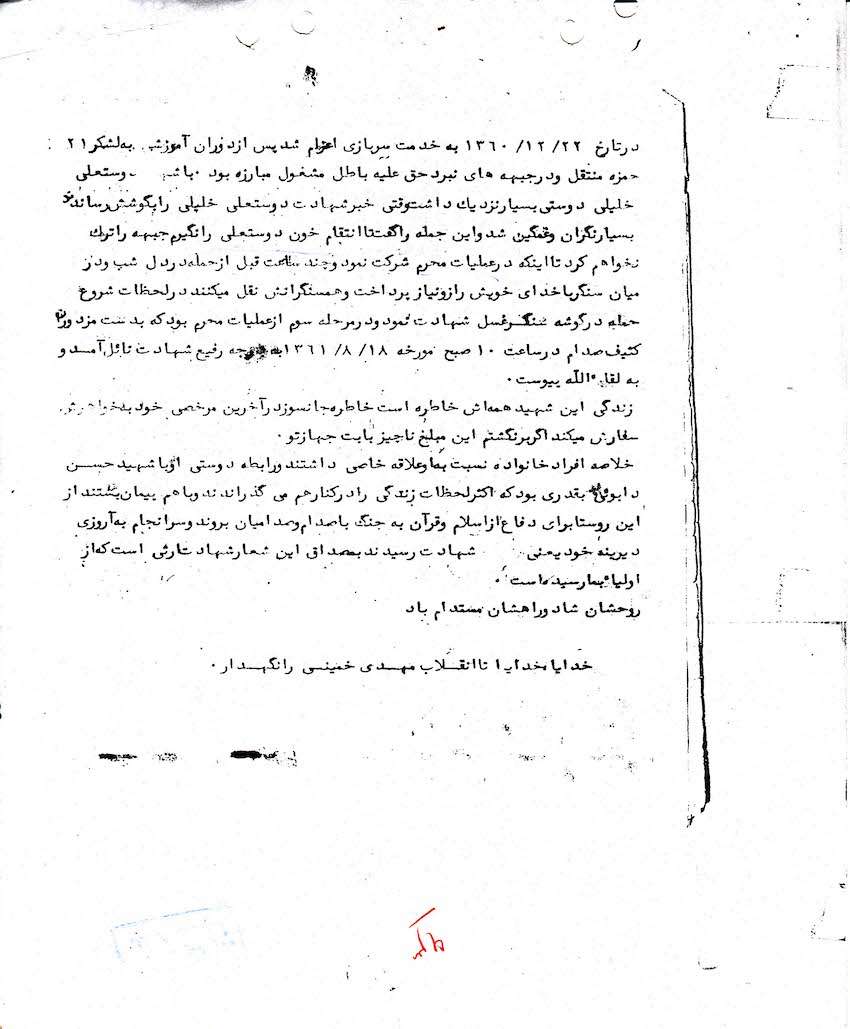 درتارخ ۱۳۶۰/۱۲/۲۲ به خدمت سربازی اعزام شد پس از دوران آموزشی به لشکر ۲۱
حمزه منتقل و در جبهه های نبرد حق علیه باطل مشغول مبارزه بود . با شهید دوستعلی
خلیلی دوستی بسیار نزدیک داشت وقتی خبر شهادت دوستعلی خلیلی را بگوشش رساندند
بسیار نگران و غمگین شد و این جمله را گفت تا انتقام خون دوستعلی را نگیرم جبهه را ترک
نخواهم کرد تا اینکه در عملیات محرم شرکت نمود و چند ساعت قبل از حمله در دل شب و در
میان سنگر با خدای خویش راز و نیاز پرداخت و همسنگرانش نقل میکنند در لحظات شروع
حمله در گوشه سنگر غسل شهادت نمود و در مرحله سوم از عملیات محرم بود که بدست مزدوران
کثیف صدام در ساعت ۱۰ صبح مورخه ۱۳۶۱/۸/۱۸ به درجه رفیع شهادت نائل آمد و
به لقاء الله پیوست .
زندگی این شهید همه‌اش خاطره است خاطره جانسوز در آخرین مرخصی خود به خواهرش
سفارش میکند اگر برنگشتم این مبلغ ناچیز بابت جهاز تو .
خلاصه افراد خانواده نسبت به او علاقه خاصی داشتند و رابطه دوستی او با شهید حسن
بقدری بود که اکثر لحظات زندگی را در کنار هم می گذراندند و با هم پیمان بستند از
این روستا برای دفاع از اسلام و قرآن به جنگ با صدام و صدامیان بروند و سرانجام به آرزوی
دیرینه خود یعنی شهادت رسیدند بمصداق این شعار شهادت ارثی است که از
اولیاء بما رسیده است .
روحشان شاد و راهشان مستدام باد
خدایا خدایا تا انقلاب مهدی خمینی را نگهدار .